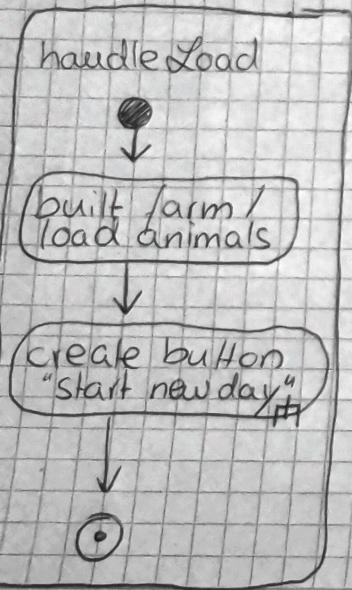 handleLoad
built farm /
load animals
create button
"start new day"